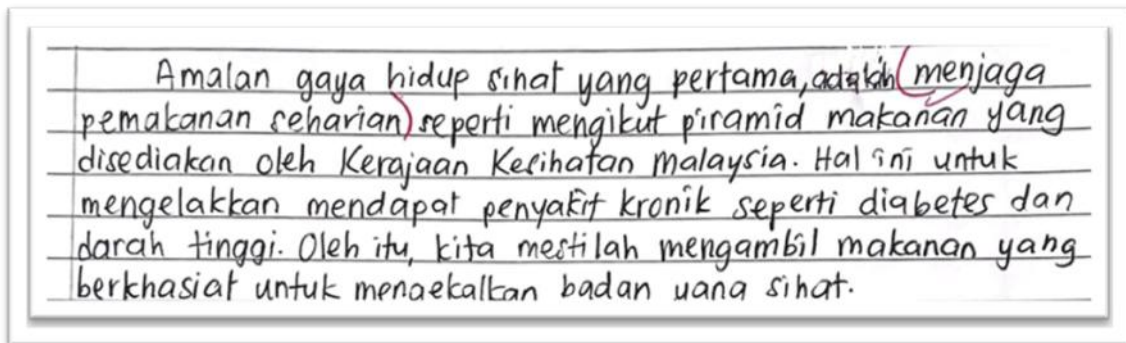 Amalan gaya hidup sihat yang pertama, adalah menjaga
pemakanan seharian seperti mengikut piramid makanan yang
disediakan oleh Kerajaan Kesihatan Malaysia. Hal ini untuk
mengelakkan mendapat penyakit kronik seperti diabetes dan
darah tinggi. Oleh itu, kita mestilah mengambil makanan yang
berkhasiat untuk mengekalkan badan yang sihat.